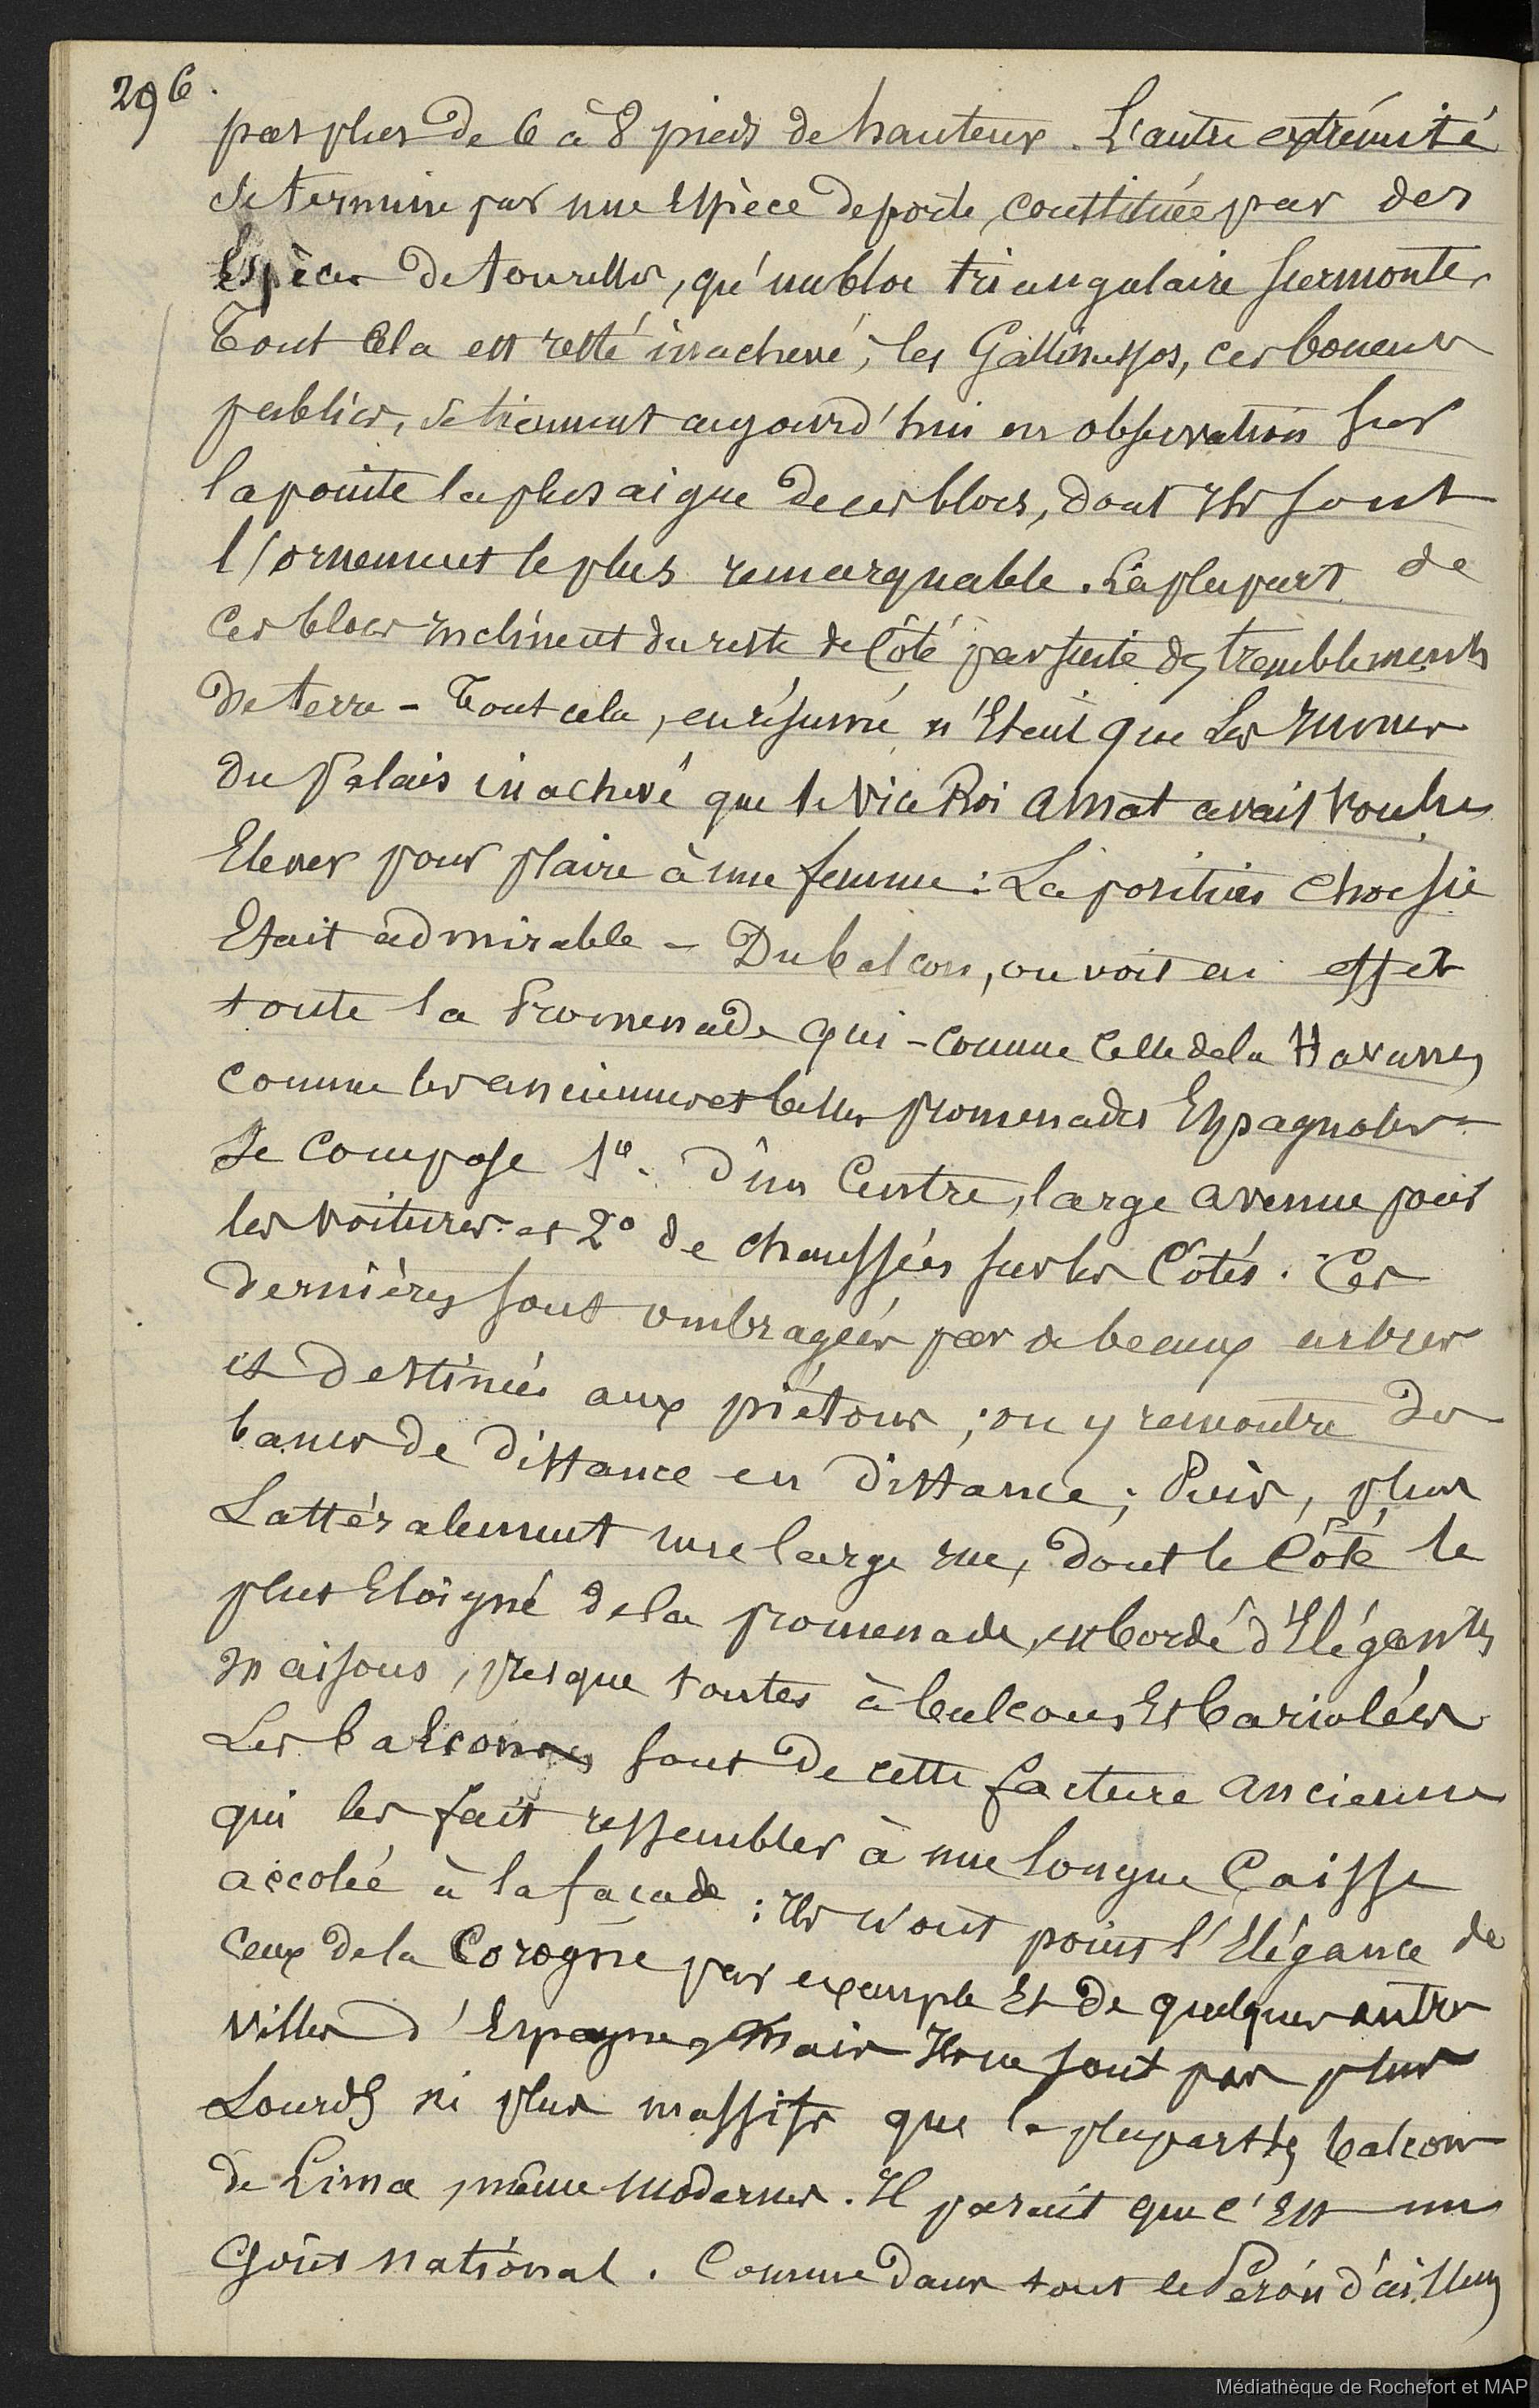 296.
pas plus de 6 à 8 pieds de hauteur. L'autre extrémité
se termine par une Espèce de porte, constituée par des
Espèces de tourelles, qu'un bloc triangulaire surmonte.
Tout cela est resté inachevé; les Gallinassos, ces boueurs
publics, se tiennent aujourd'hui en observation sur
la pointe la plus aigue de ces blocs, dont Ils sont
l'ornement le plus remarquable. La plupart de
Ces blocs inclinent du reste de Côté par suite des tremblements
de terre - Tout cela, en résumé n'Etait que Les ruines
du Palais inachevé que le Vice Roi Amat avait voulu
Elever pour plaire à une femme: La position choisie
Etait admirable - Du balcon, on voit en effet
toute la Promenade qui - comme Celle de la Havane,
comme les anciennes et belles promenades Espagnoles -
Se Compose 1º. D'un Centre, large avenue pour
les voitures et 2º de chaussées sur les Côtés. Ces
dernières sont ombragées par de beaux arbres
et destinées aux piétons; on y rencontre des
bancs de distance en distance; Puis, plus
Lattéralement une large rue, dont le Côté le
plus Eloigné de la promenade, est bordé d'Elégantes
maisons, presque toutes à balcons Et bariolées
Les balcons sont de cette facture ancienne
qui les fait ressembler à une longue Caisse
accolée à la façade; Ils n'ont point l'Elégance de
Ceux de la Corogne par exemple Et de quelques autres
villes d'Espagne, Mais Ils ne sont pas plus
Lourds ni plus massifs que la plupart des balcons
de Lima, même modernes. Il parait que c'Est un
Goût national. Comme dans tout le Pérou d'ailleurs
Médiathèque de Rochefort et MAP